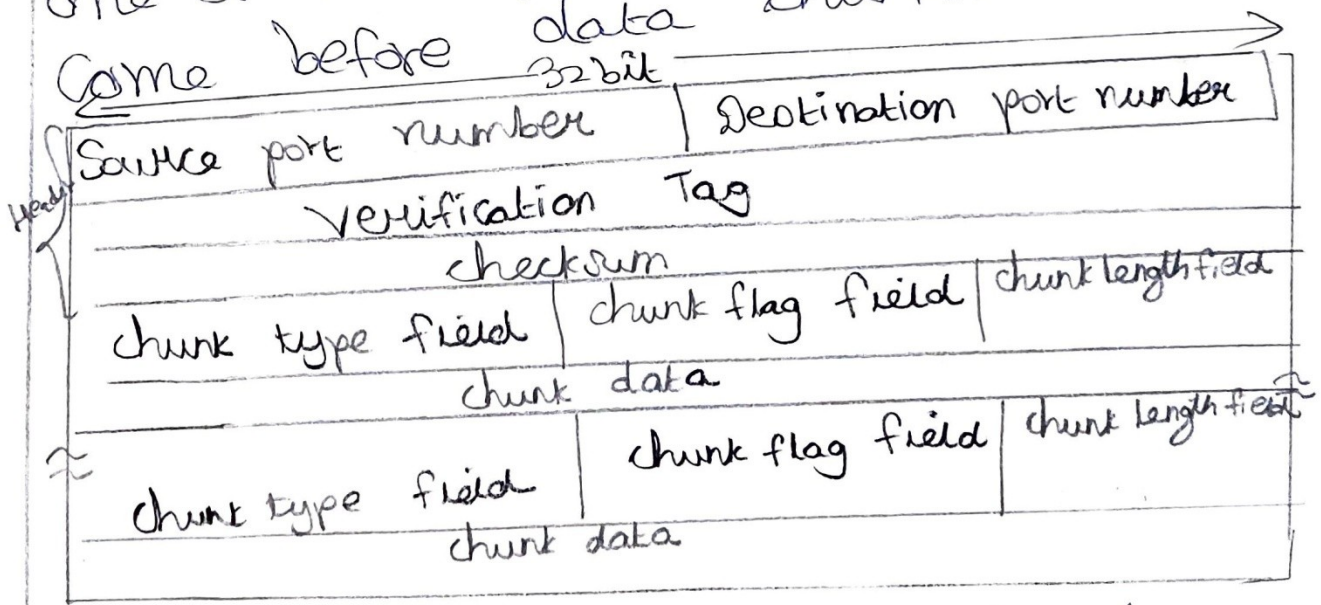 Come before data
32 bit
Source port number Destination port number
Header
Verification Tag
checksum
chunk type field chunk flag field chunk length field
chunk data
chunk type field chunk flag field chunk length field
chunk data